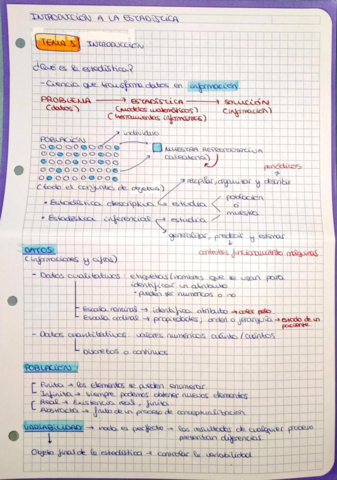 INTRODUCCIÓN A LA ESTADÍSTICA
TEMA 1 INTRODUCCIÓN
¿Qué es la estadística?
- Ciencia que transforma datos en información
PROBLEMA → ESTADÍSTICA → SOLUCIÓN
(datos) (modelos matemáticos) (información)
(herramientas informáticas)
individuo
POBLACIÓN
MUESTRA REPRESENTATIVA
(aleatoria)
periódicos
(todo el conjunto de objetos) recopilar, organizar y describir
• Estadística descriptiva → estudia población
ó
• Estadística inferencial → estudia muestra
generalizar, predecir y estimar
control funcionamiento máquinas
DATOS
(informaciones y cifras)
- Datos cualitativos: etiquetas/nombres que se usan para
identificar un atributo
• pueden ser numéricos o no
Escala nominal → identifica atributo → color pelo
Escala ordinal → propiedades, orden o jerarquía → estado de un
paciente
- Datos cuantitativos: valores numéricos cuánto/cuántos
discretos o continuos
POBLACIÓN
Finita → los elementos se pueden enumerar
Infinita → siempre podemos obtener nuevos elementos
Real → existencia real, finita
Abstracta → fruto de un proceso de conceptualización
VARIABILIDAD → nada es perfecto → los resultados de cualquier proceso
presentan diferencias
Objeto final de la estadística → controlar la variabilidad